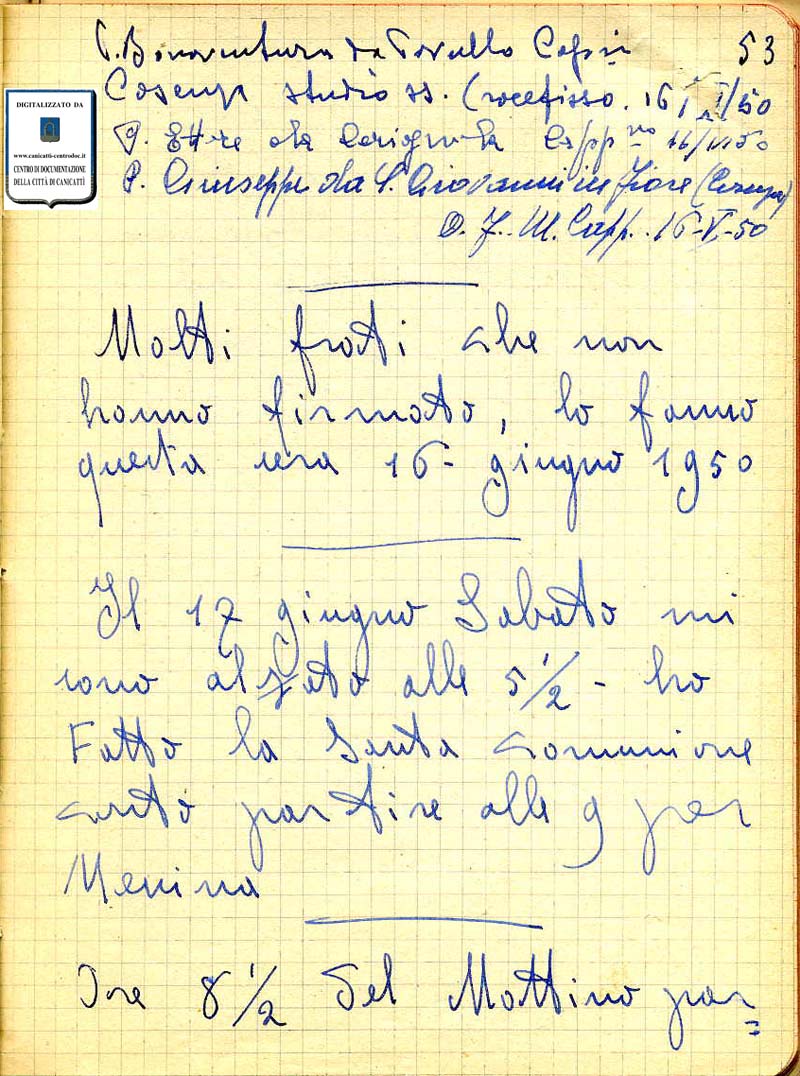 53
P. Bonaventura da Capp.
Cosenza studio ss. Crocefisso. 16 /50
DIGITALIZZATO DA
www.canicatti-centrodoc.it
CENTRO DI DOCUMENTAZIONE
DELLA CITTÀ DI CANICATTÌ
P. da Cerignola 50
P. Giuseppe da S. Giovanni in Fiore (Cosenza)
O. F. M. Capp. 16-VI-50
Molti frati che non
hanno firmato, lo fanno
questa sera 16- giugno 1950
Il 17 giugno Sabato mi
sono alzato alle 5 1/2 - ho
Fatto la Santa comunione
conto partire alle 9 per
Messina
Ore 8 1/2 del Mattino par=